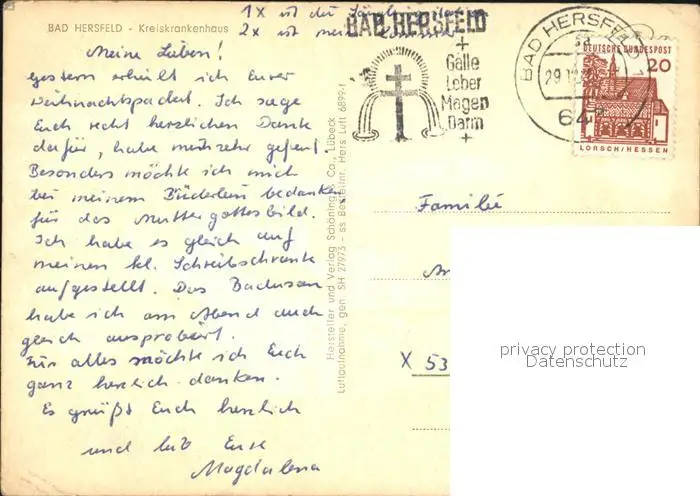 BAD HERSFELD - Kreiskrankenhaus
1x ist der
2x ist
Meine Lieben!
Gestern erhielt ich Euer
Weihnachtspacket. Ich sage
Euch recht herzlichen Dank
dafür, habe mich sehr gefreut.
Besonders möchte ich mich
bei meinem Brüderlein bedanken
für das Muttergottesbild.
Ich habe es gleich auf
meinen kl. Schreibschrank
aufgestellt. Das
habe ich am Abend auch
gleich ausprobiert.
Für alles möchte ich Euch
ganz herzlich danken.
Es grüßt Euch herzlich
und lieb Eure
Magdalena
Hersteller und Verlag Schöning & Co., Lübeck
Luftaufnahme, gen. SH 27973 - ss Bestellnr. Hers Luft 6899-1
BAD HERSFELD
+
Galle
Leber
Magen
Darm
+
BAD HERSFELD 1
29.12.
64
DEUTSCHE BUNDESPOST
20
LORSCH/HESSEN
Familie
X 53
privacy protection
Datenschutz